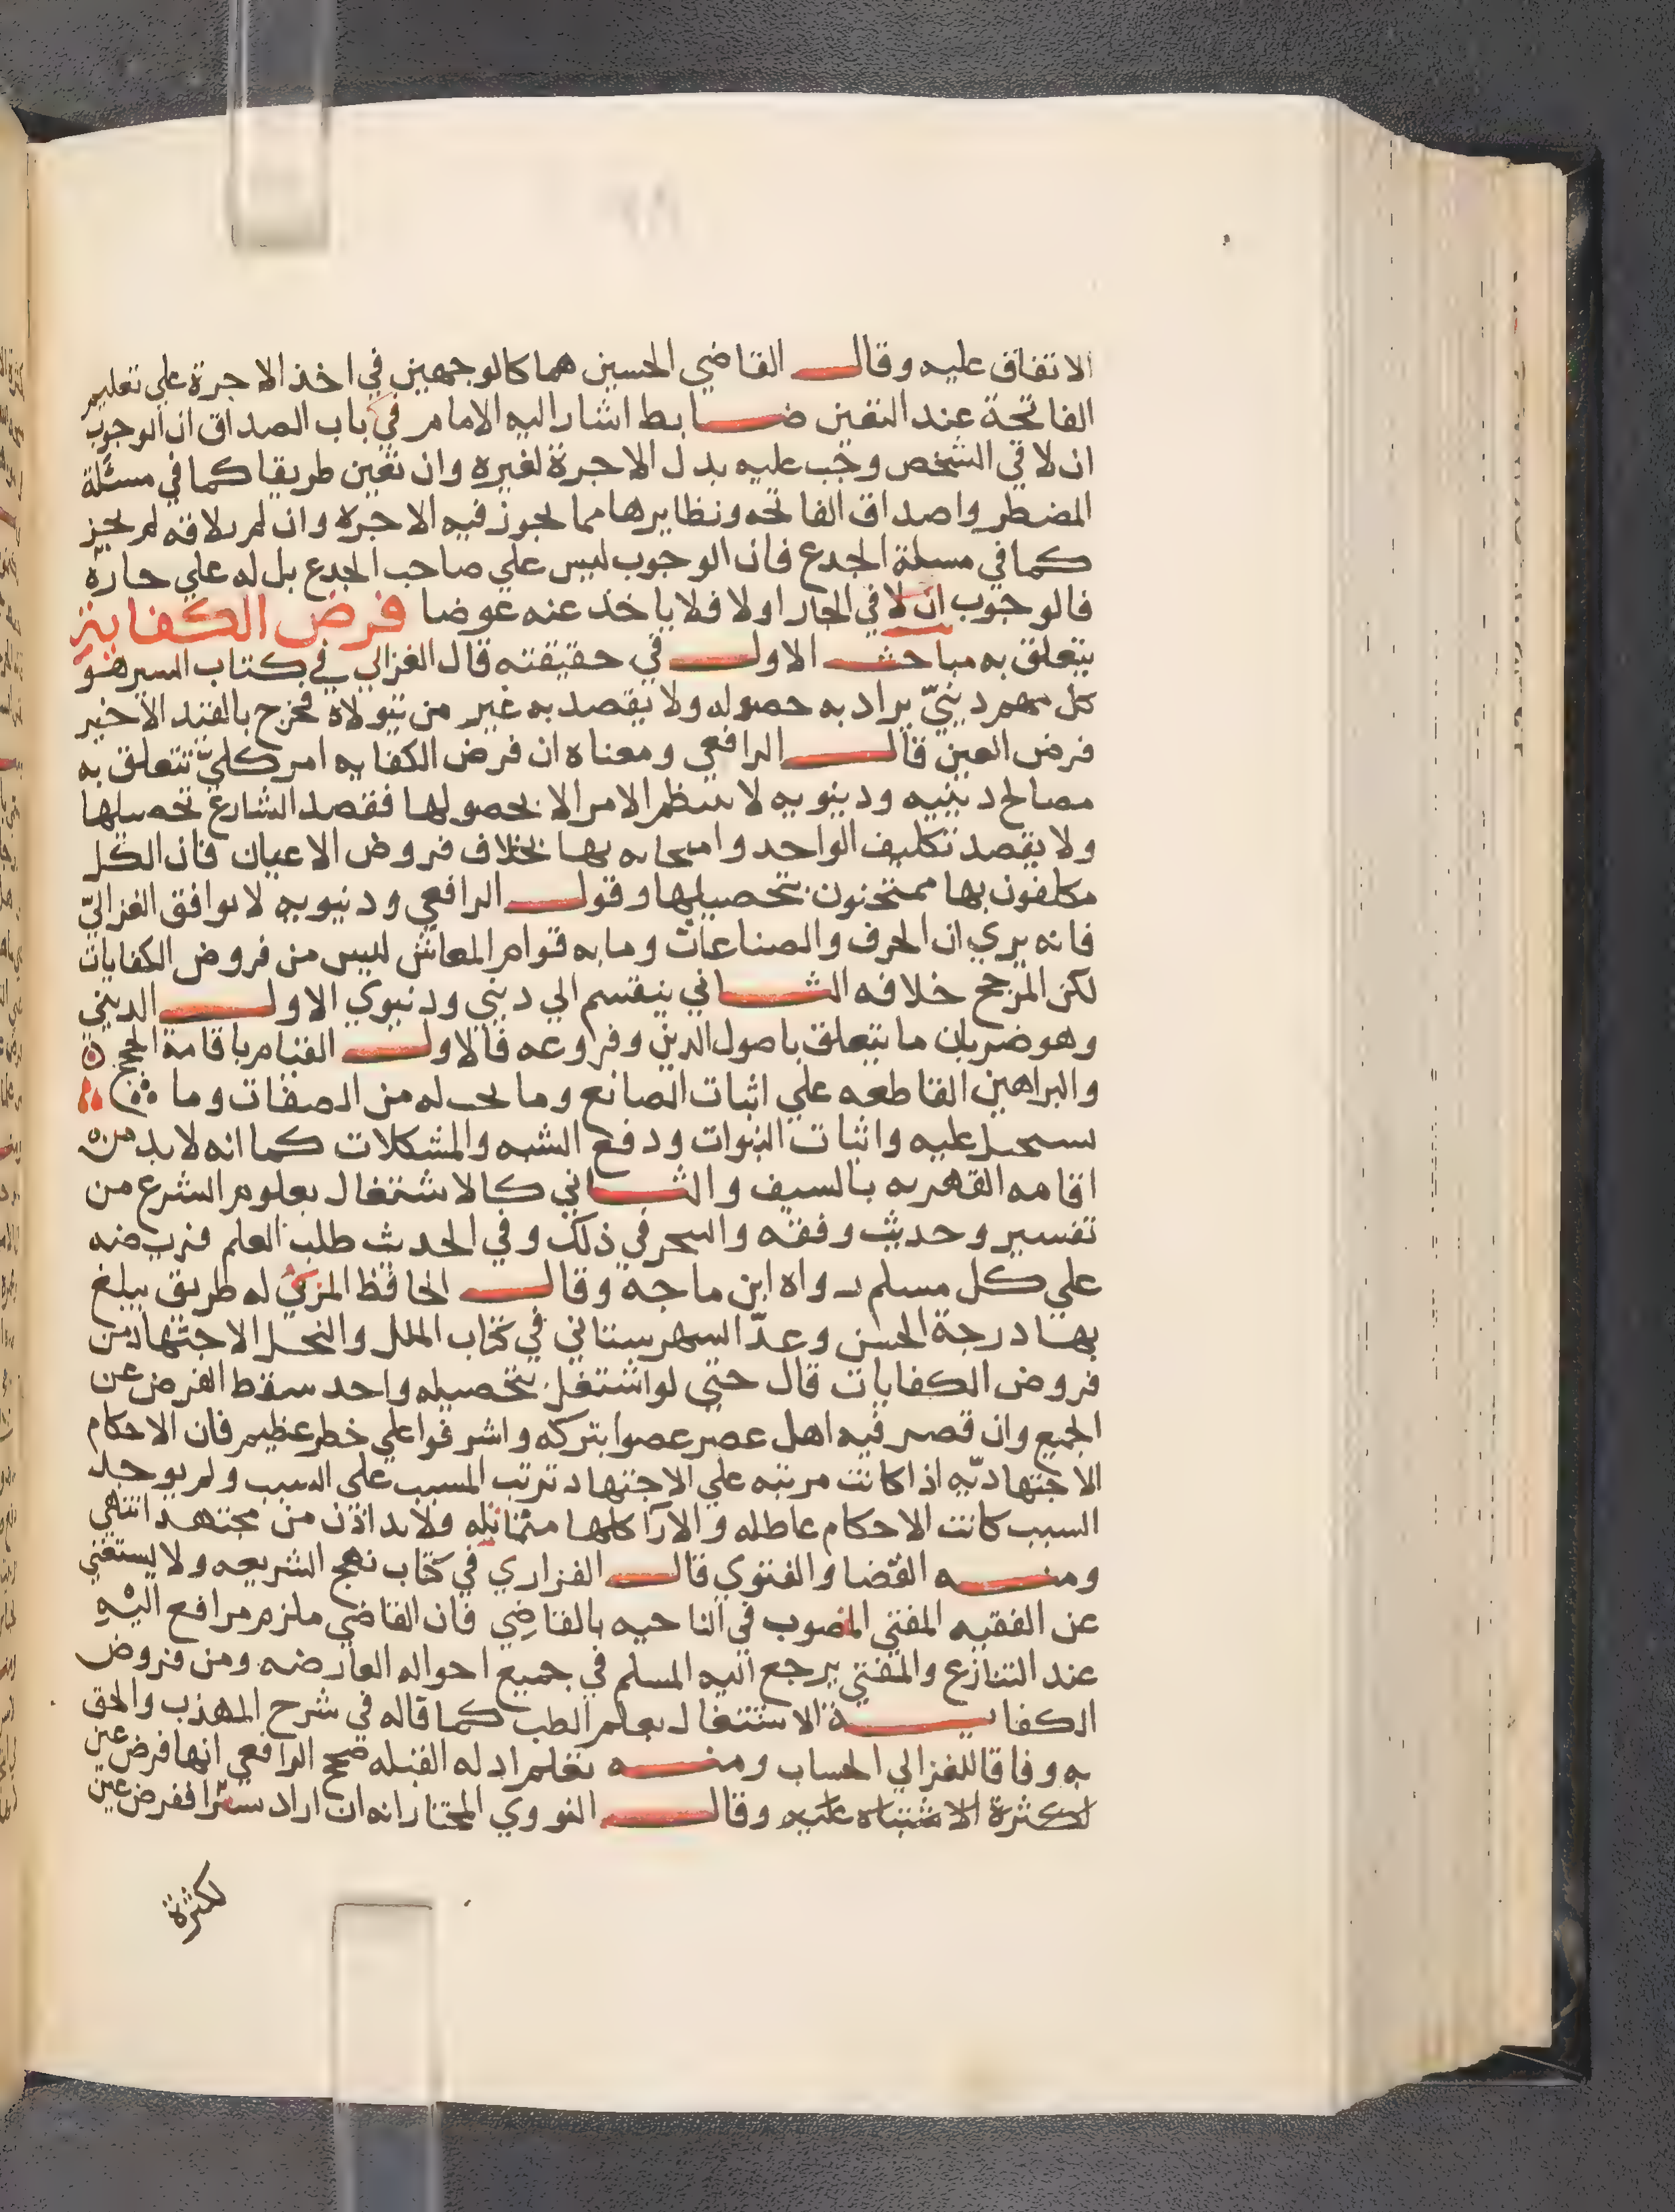 الاتفاق عليه وقال القاضي الحسين هما كالوجهين في اخذ الاجرة علي تعليم
الفاتحة عند التعين ضابط اشار اليه الامام في باب الصداق ان الوجوب
ان لاقي الشخص وجب عليه بدل الاجرة لغيره وان تعين طريقا كما في مسئلة
المضطر واصداق الفاتحه ونظايرها مما يجوز فيه الاجرة وان لم يلاقه لم يجز
كما في مسلة الجدع فان الوجوب ليس علي صاحب الجدع بل له علي جاره
فالوجوب ان لاقي الجار اولا فلا ياخذ عنه عوضا فرض الكفاية
يتعلق به مباحث الاول في حقيقته قال الغزالي في كتاب السير هو
كل مهم ديني يراد به حصوله ولا يقصد به غير من يتولاه فخرج بالقيد الاخير
فرض العين قال الرافعي ومعناه ان فرض الكفايه امر كلي تتعلق به
مصالح دينيه ودينويه لا ينتظم الامر الا بحصولها فقصد الشارع تحصيلها
ولا يقصد تكليف الواحد وامتحانه بها بخلاف فروض الاعيان فان الكل
مكلفون بها ممتحنون بتحصيلها وقول الرافعي ودنيويه لا يوافق الغزالي
فانه يري ان الحرف والصناعات وما به قوام المعاش ليس من فروض الكفايات
لكن المرجح خلافه الثاني ينقسم الي ديني ودنيوي الاول الديني
وهو ضربان ما يتعلق باصول الدين وفروعه فالاول القيام باقامة الحجج
والبراهين القاطعه علي اثبات الصانع وما يجب له من الصفات وما
يستحيل عليه واثبات النبوات ودفع الشبه والمشكلات كما انه لا بد من
اقامه القهريه بالسيف والثاني كالاشتغال بعلوم الشرع من
تفسير وحديث وفقه والتبحر في ذلك وفي الحديث طلب العلم فريضه
علي كل مسلم رواه ابن ماجه وقال الحافظ المزي له طريق يبلغ
بها درجة الحسن وعدّ الشهرستاني في كتاب الملل والنحل الاجتهاد من
فروض الكفايات قال حتي لو اشتغل بتحصيله واحد سقط الفرض عن
الجميع وان قصر فيه اهل عصر عصوا بتركه واشرفوا علي خطر عظيم فان الاحكام
الاجتهاديّه اذا كانت مرتبه علي الاجتهاد ترتب المسبب علي السبب ولم يوجد
السبب كانت الاحكام عاطله والارا كلها متماثله ولا بد اذن من مجتهد انتهي
ومنه القضا والفتوي قال الفزاري في كتاب نهج الشريعه ولا يستغني
عن الفقيه المفتي المنصوب في الناحيه بالقاضي فان القاضي ملزم من رافع اليه
عند التنازع والمفتي يرجع اليه المسلم في جميع احواله العارضه ومن فروض
الكفاية الاشتغال بعلم الطب كما قاله في شرح المهذب والحق
به وفاقا للغزالي الحساب ومنه تعلم ادله القبله صحح الرافعي انها فرض عين
لكثرة الاشتباه عليه وقال النووي المختار انه ان اراد سفرا ففرض عين
لكثرة